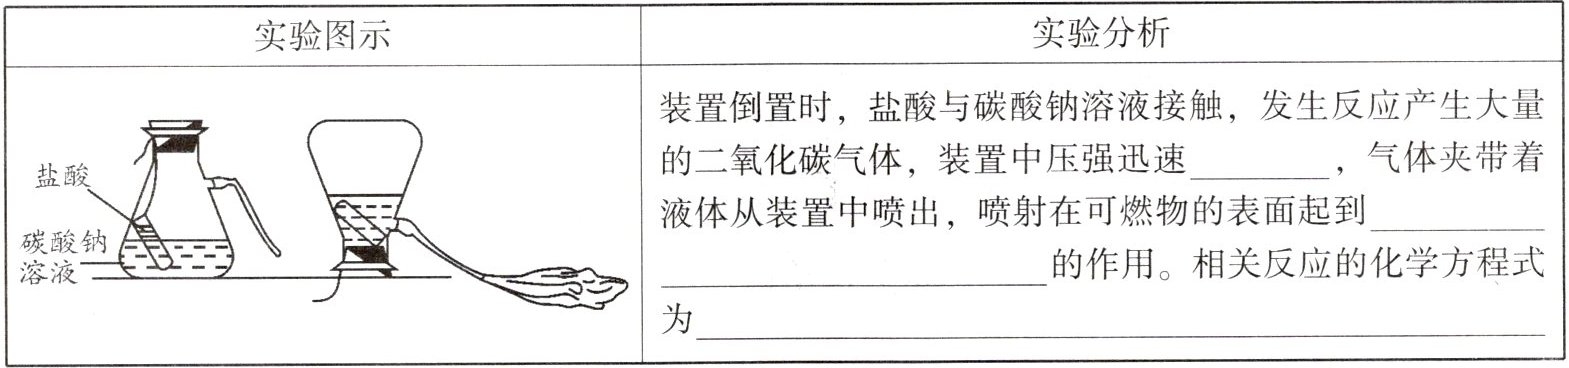 实验图示
实验分析
盐酸
碳酸钠
溶液
装置倒置时，盐酸与碳酸钠溶液接触，发生反应产生大量
的二氧化碳气体，装置中压强迅速________，气体夹带着
液体从装置中喷出，喷射在可燃物的表面起到__________
______________________的作用。相关反应的化学方程式
为__________________________________________________